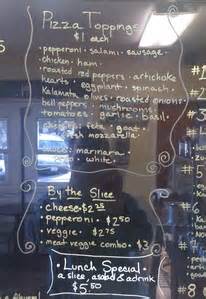 Pizza Toppings
$1 each
· pepperoni · salami · sausage ·
chicken · ham ·
roasted red peppers · artichoke
hearts · eggplant · spinach ·
Kalamata olives · roasted onions ·
bell peppers · mushrooms ·
tomatoes · garlic · basil ·
feta · goat ·
fresh mozzarella
marinara
· white ·
By the Slice
· cheese · $2.25
· pepperoni · $2.50
· veggie · $2.75
· meat veggie combo · $3
· Lunch Special ·
a slice, a salad & a drink
$5.50
#1
#
#3
#4
#5
#6
#7
#8